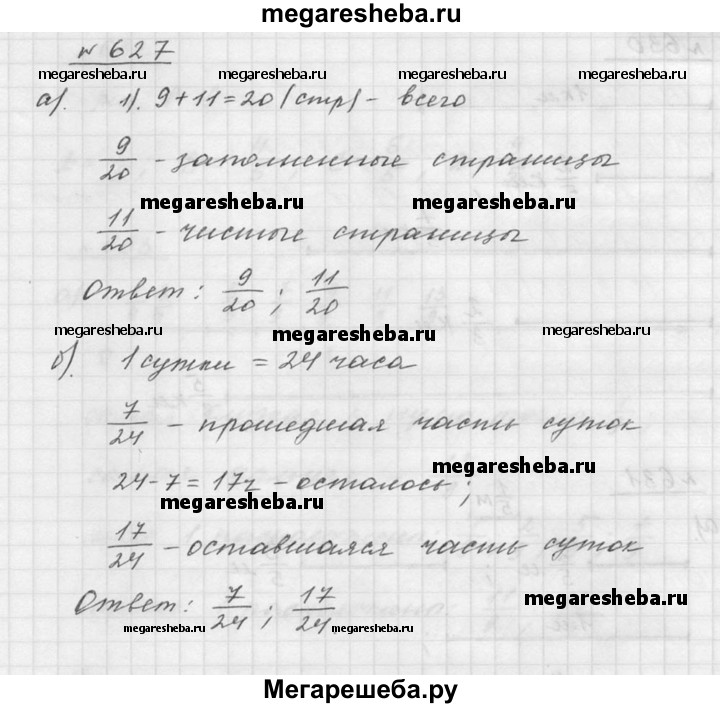 megaresheba.ru
№ 627
megaresheba.ru megaresheba.ru megaresheba.ru
а). 1). 9+11=20 (стр) - всего
9/20 - заполненные страницы
megaresheba.ru megaresheba.ru
11/20 - чистые страницы
Ответ: 9/20; 11/20
megaresheba.ru megaresheba.ru
б). 1 сутки = 24 часа
7/24 - прошедшая часть суток
megaresheba.ru
24-7=17ч - осталось;
megaresheba.ru
17/24 - оставшаяся часть суток
megaresheba.ru
Ответ: 7/24; 17/24
megaresheba.ru megaresheba.ru
Мегарешеба.ру